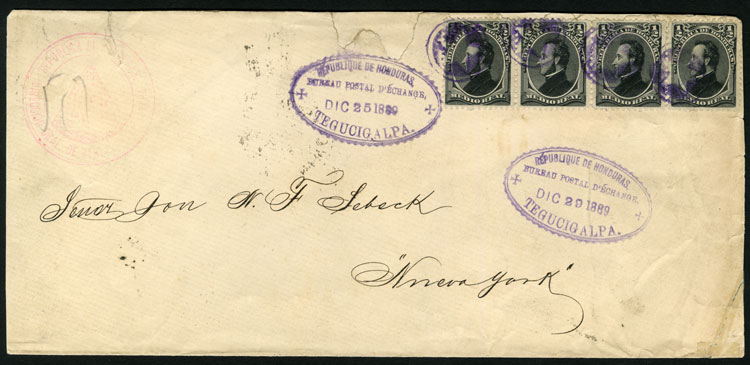 RÉPUBLIQUE DE HONDURAS,
BUREAU POSTAL D'ÉCHANGE,
DIC 25 1889
TEGUCIGALPA.
MEDIO REAL MEDIO REAL MEDIO REAL MEDIO REAL
RÉPUBLIQUE DE HONDURAS,
BUREAU POSTAL D'ÉCHANGE,
DIC 29 1889
TEGUCIGALPA.
Señor Don N. F. Sebeck
"Nueva York"